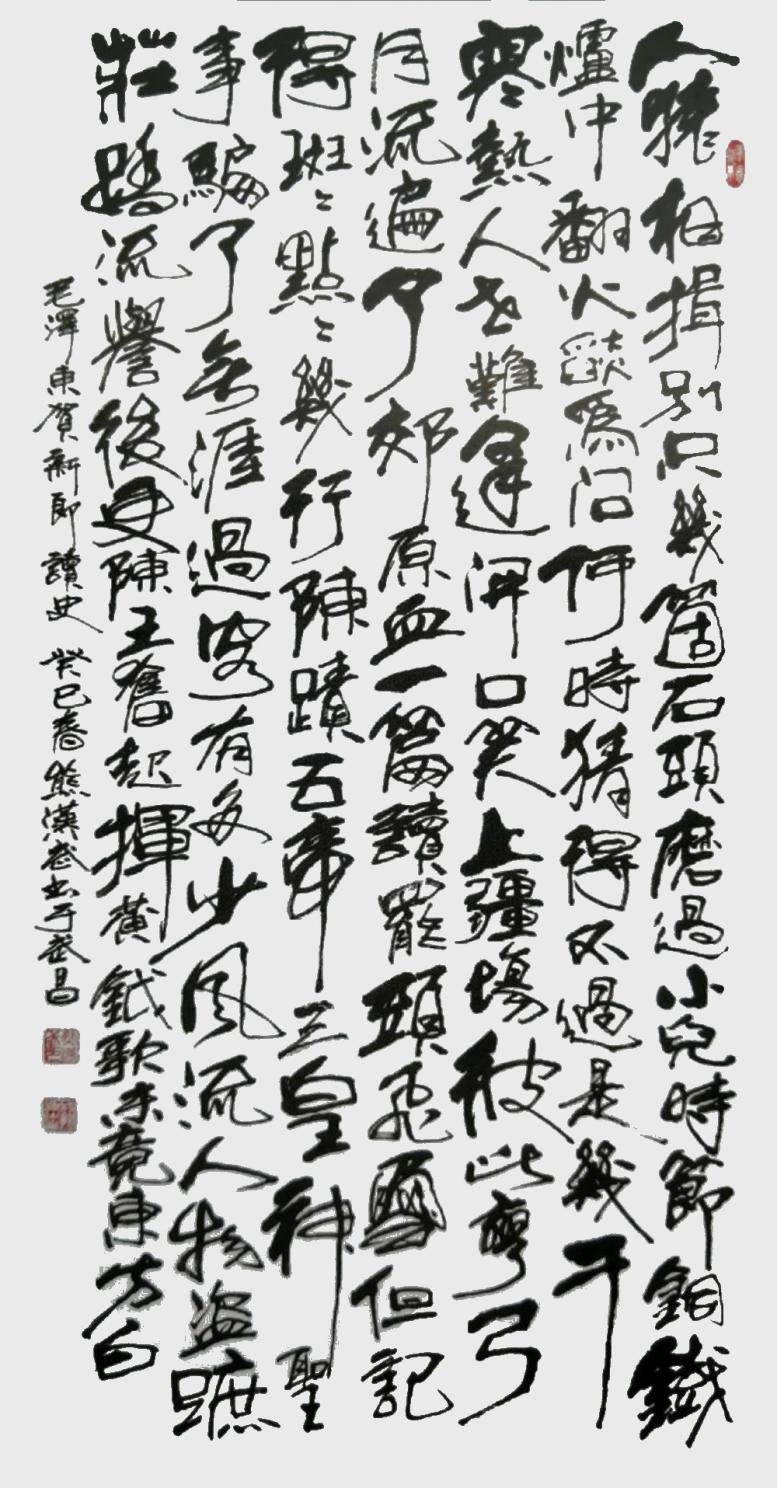 人猿相揖別只幾箇石頭磨過小兒時節銅鐵
爐中翻火燄為问何時猜得不過是幾千
寒熱人世難逢開口笑上疆場彼此彎弓
月流遍了郊原血一篇讀罷頭飛雪但記
得斑〻點〻幾行陳蹟五帝三皇神聖
事騙了無涯過客有多少風流人物盜蹠
莊蹻流譽後更陳王奮起揮黄鉞歌未竟東方白
毛澤東賀新郎讀史 癸巳春熊漢武书于武昌